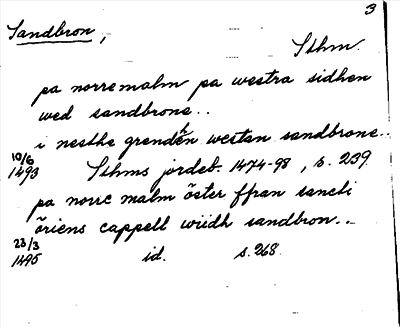 3
Sandbron,
Sthm.
pa norremalm pa westra sidhen
wed sandbrone..
i nesthe grendhen westan sandbrone..
10/6
1493 Sthms jordeb. 1474-98, s. 239
pa norre malm öster ffran sancti
öriens cappell wiidh sandbron..
23/3
1495 id. s. 268.